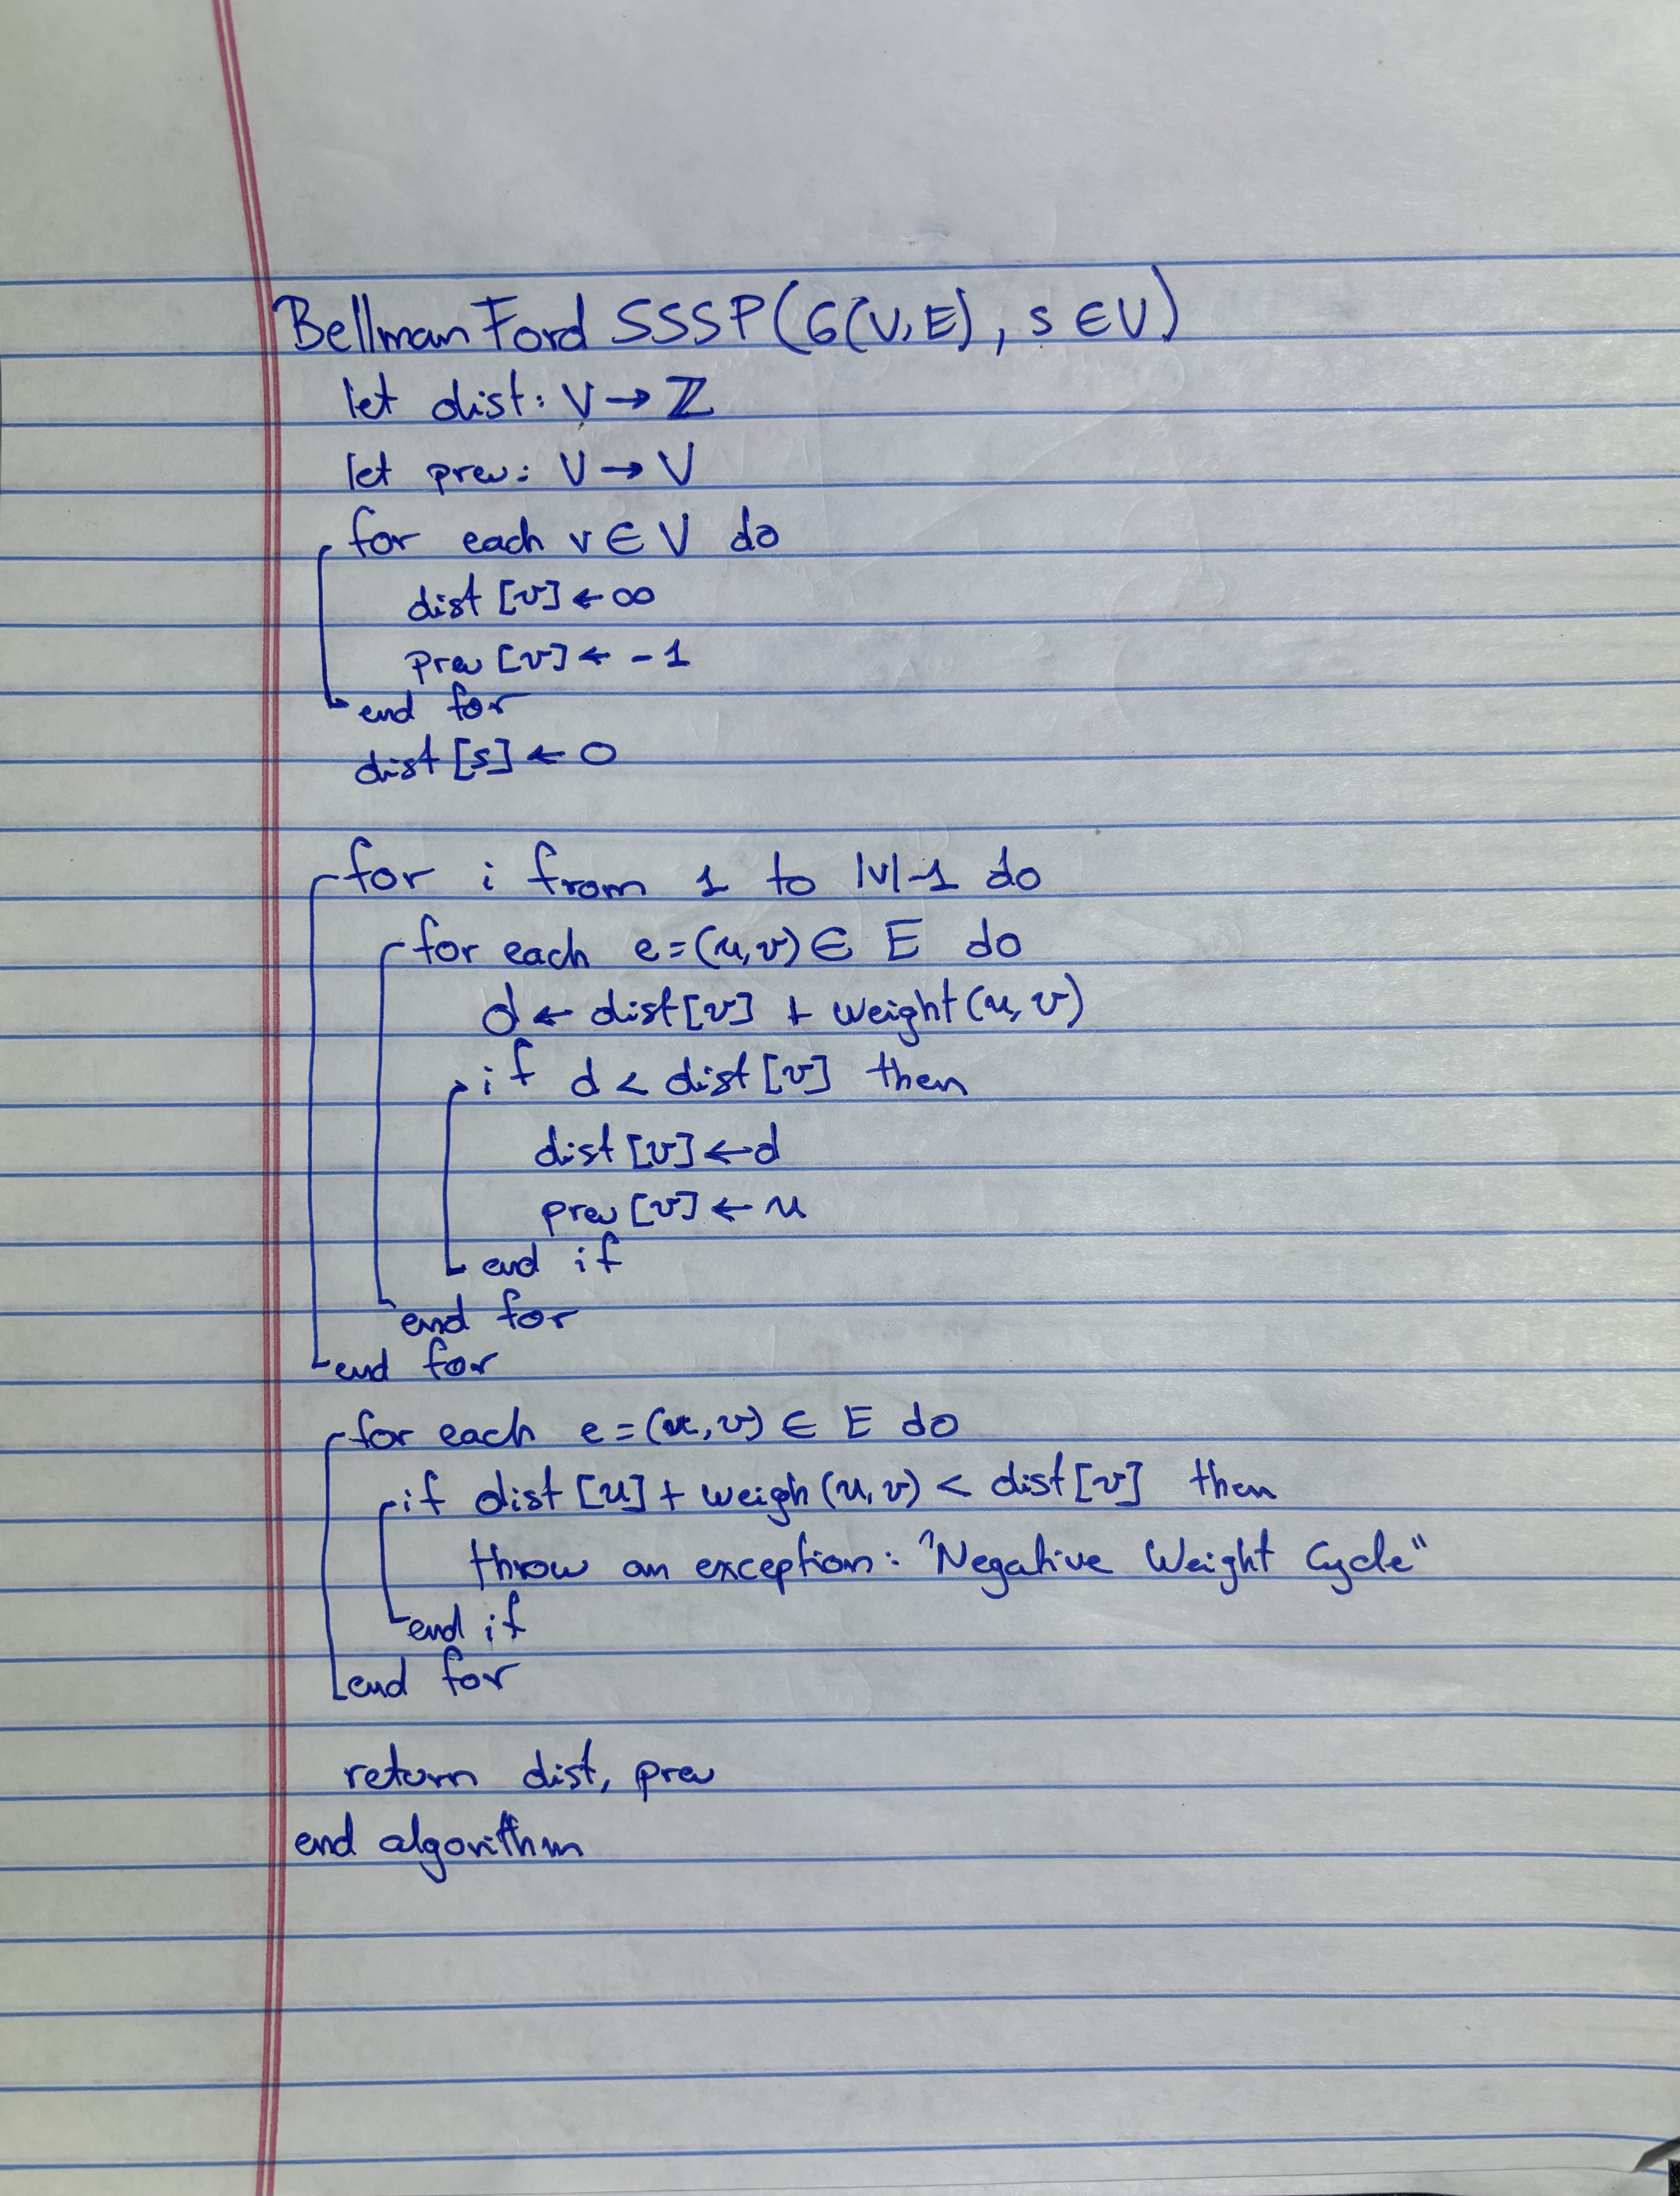 Bellman Ford SSSP(G(V,E), s ∈ V)
let dist: V → ℤ
let prev: V → V
for each v ∈ V do
dist [v] ← ∞
prev [v] ← -1
end for
dist [s] ← 0
for i from 1 to |V|-1 do
for each e=(u,v) ∈ E do
d ← dist[v] + weight(u,v)
if d < dist[v] then
dist [v] ← d
prev [v] ← u
end if
end for
end for
for each e=(u,v) ∈ E do
if dist [u] + weigh(u,v) < dist[v] then
throw an exception: "Negative Weight Cycle"
end if
end for
return dist, prev
end algorithm